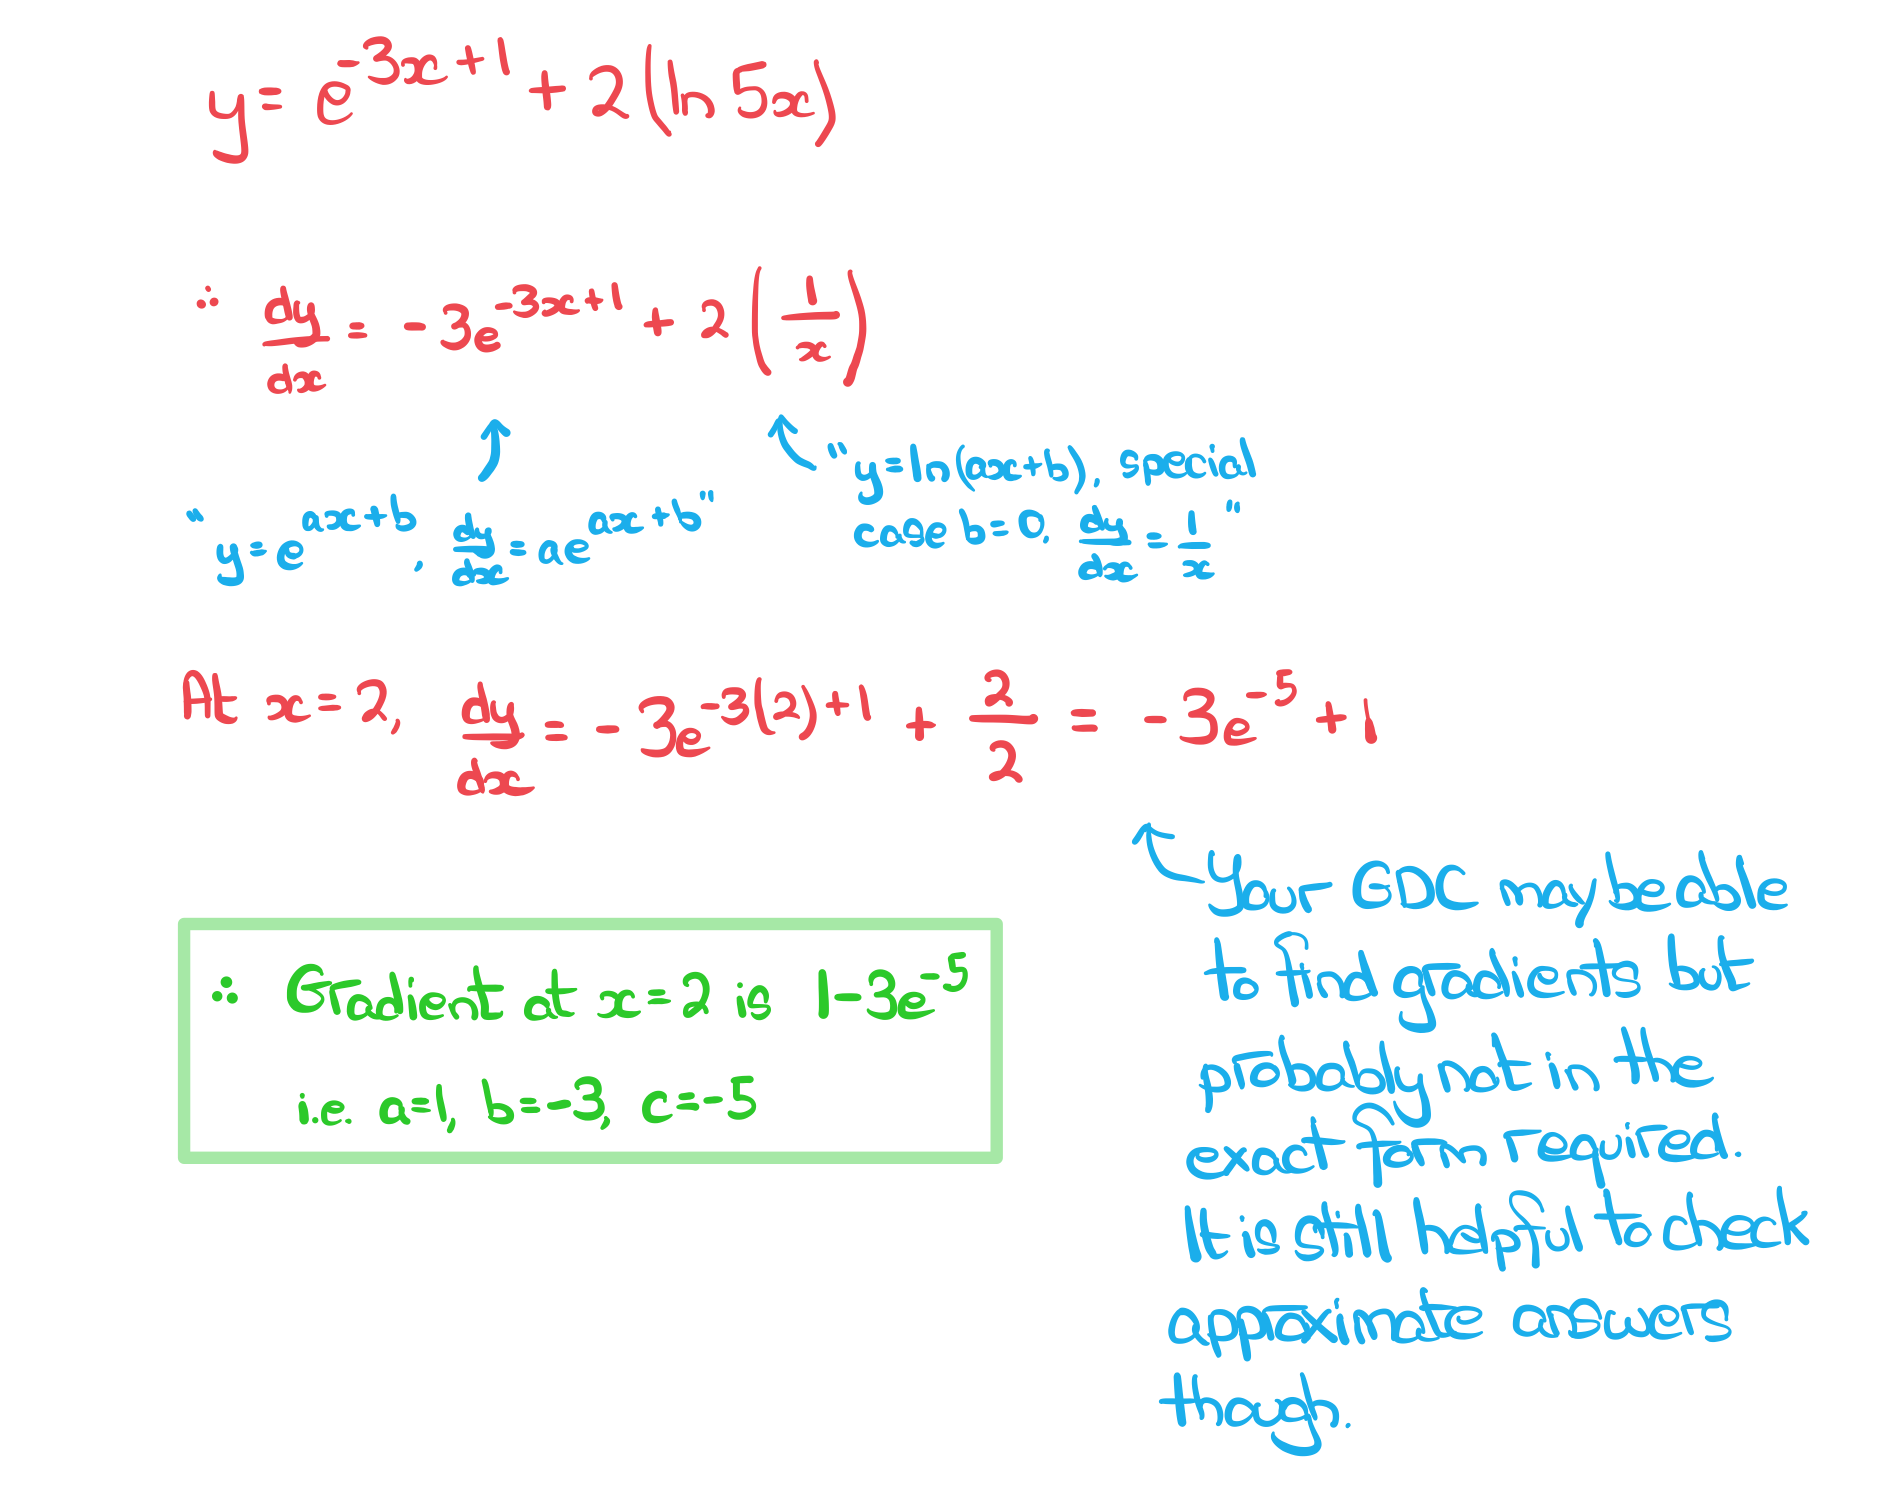 y = e^{-3x+1} + 2(ln 5x)
∴ dy/dx = -3e^{-3x+1} + 2(1/x)
"y=e^{ax+b}, dy/dx = ae^{ax+b}"
"y=ln(ax+b), special
case b=0, dy/dx = 1/x"
At x=2, dy/dx = -3e^{-3(2)+1} + 2/2 = -3e^{-5} + 1
Your GDC may be able
to find gradients but
probably not in the
exact form required.
It is still helpful to check
approximate answers
though.
∴ Gradient at x=2 is 1-3e^{-5}
i.e. a=1, b=-3, c=-5